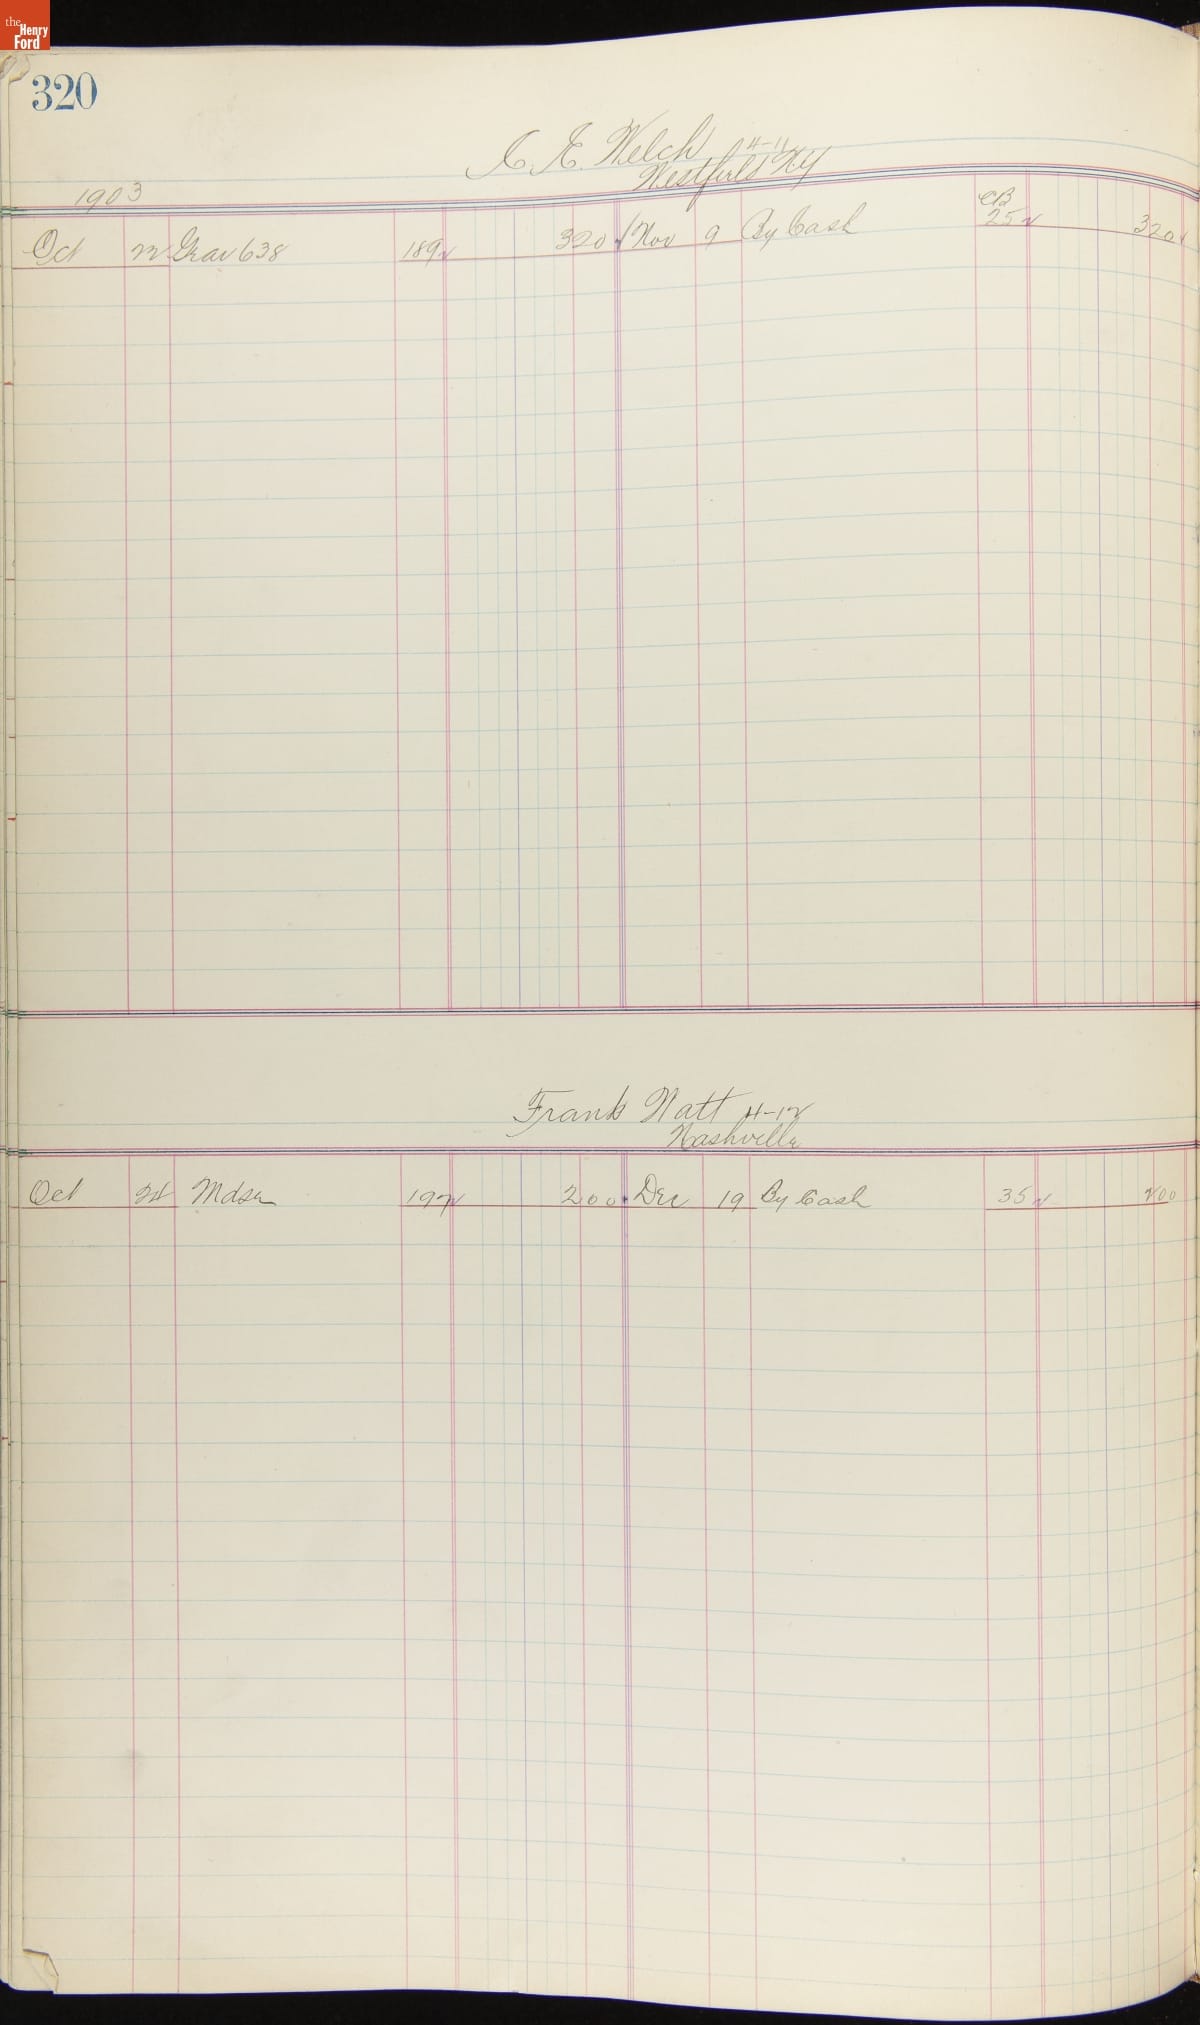 the Henry Ford
320
C. E. Welch 4-11
Westfield NY
1903
CB
Oct 22 Gear 638 189 320 Nov 9 By Cash 25 320
Frank Watt 4-12
Nashville
Oct 24 Mdse 197 200 Dec 19 By Cash 35 200